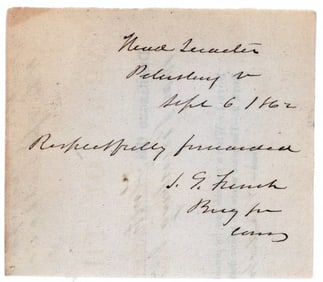 Head Quarter
Petersburg V
Sept 6 1862
Respectfully forwarded
S. G. French
Brig Gn
Comg